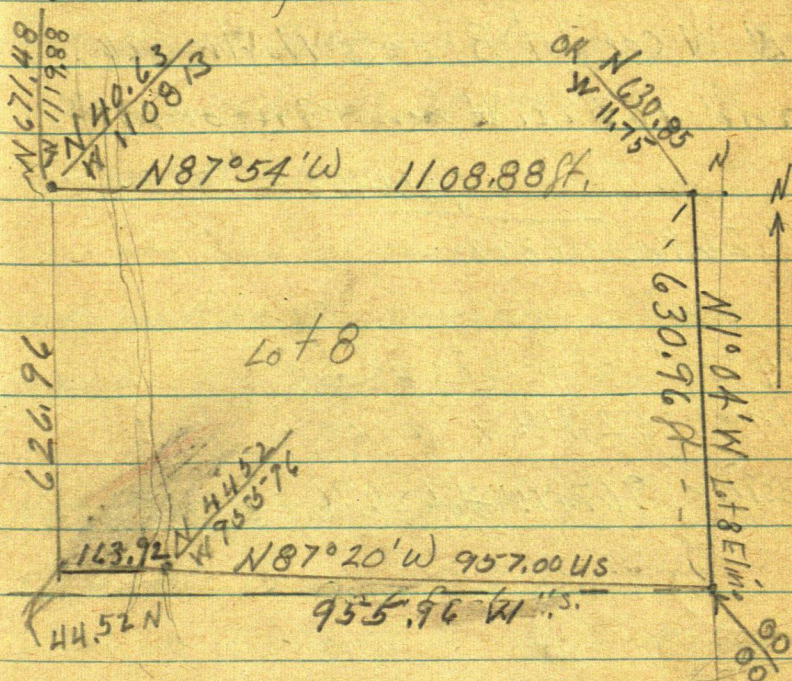 N 671.48
W 1119.88
N 40.63
W 1108 13
OR N 630.85
W 11.75
N
N
N87°54'W 1108.88 ft.
626.96
Lot 8
630.96 ft
N1°04'W Lot 8 E line
N 4452
W 955 96
163.92
N87°20'W 957.00 US
44.52 N
955.96
00
00